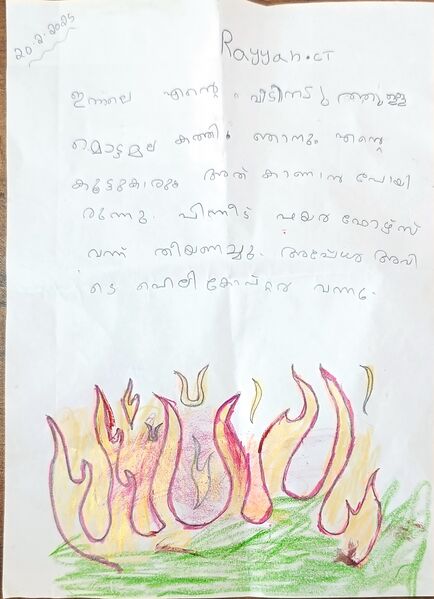 20.2.2025
Rayyan.CT
ഇന്നലെ എന്റെ വീടിനടുത്തുള്ള
മൊട്ടമല കത്തി. ഞാനും എന്റെ
കൂട്ടുകാരും അത് കാണാൻ പോയി
രുന്നു. പിന്നീട് ഫയർ ഫോഴ്സ്
വന്ന് തീയണച്ചു. അപ്പോൾ അവി
ടെ ഹെലികോപ്റ്റർ വന്നു.